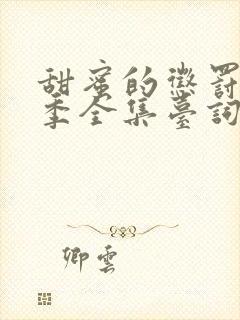 甜蜜的懲罰
季全集臺詞
卿雲